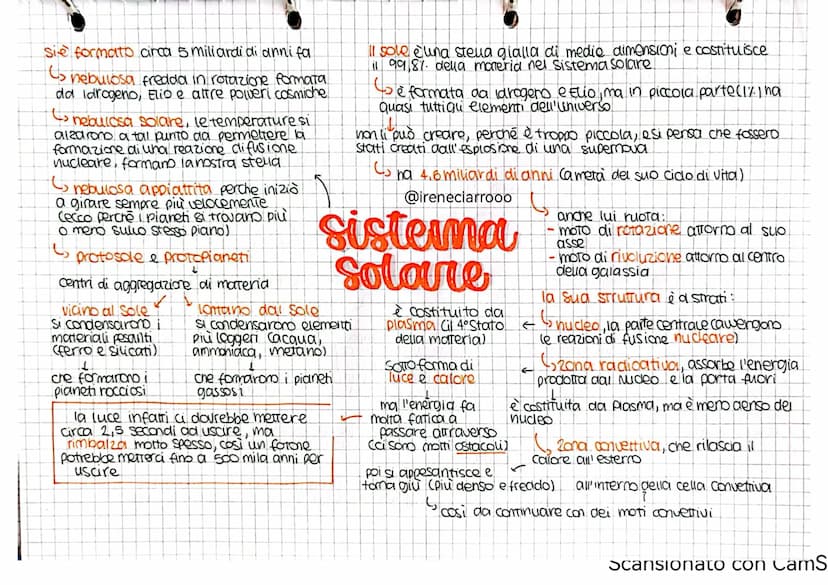 si è formato circa 5 miliardi di anni fa
↳ nebulosa fredda in rotazione formata
da Idrogeno, Elio e altre polveri cosmiche
↳ nebulosa solare, le temperature si
alzarono a tal punto da permettere la
formazione di una reazione di fusione
nucleare, formano la nostra stella
↳ nebulosa appiattita perche iniziò
a girare sempre più velocemente
(ecco perchè i pianeti si trovano più
o meno sullo stesso piano)
↳ protosole e protopianeti
centri di aggregazione di materia
vicino al sole
si condensarono i
materiali pesanti
(ferro e silicati)
che formarono i
pianeti rocciosi
lontano dal sole
si condensarono elementi
più leggeri (acqua,
ammoniaca, metano)
che formarono i pianeti
gassosi
sistema
solare
@ireneciarrooo
il sole è una stella gialla di medie dimensioni e costituisce
il 99,8% della materia nel sistema solare
↳ è formata da Idrogeno e Elio, ma in piccola parte (1%) ha
quasi tutti gli elementi dell'universo
non li può creare, perchè è troppo piccola, e si pensa che fossero
stati creati dall'esplosione di una supernova
↳ ha 4.6 miliardi di anni (a metà del suo ciclo di vita)
anche lui ruota:
- moto di rotazione attorno al suo
asse
- moto di rivoluzione attorno al centro
della galassia
la sua struttura è a strati:
↳ nucleo, la parte centrale (avvengono
le reazioni di fusione nucleare)
è costituito da
plasma (il 4° stato
della materia)
↳ zona radioativa, assorbe l'energia
prodotta dal nucleo e la porta fuori
è costituita da plasma, ma è meno denso del
nucleo
sotto forma di
luce e calore
ma l'energia fa
molta fatica a
passare attraverso
(ci sono molti ostacoli)
la luce infatti ci dovrebbe mettere
circa 2,5 secondi ad uscire, ma
rimbalza molto spesso, così un fotone
potrebbe metterci fino a 500 mila anni per
uscire
↳ zona convettiva, che rilascia il
calore all'esterno
all'interno della cella convettiva
poi si appesantisce e
torna giù (più denso e freddo)
↳ così da continuare con dei moti convettivi
Scansionato con CamS